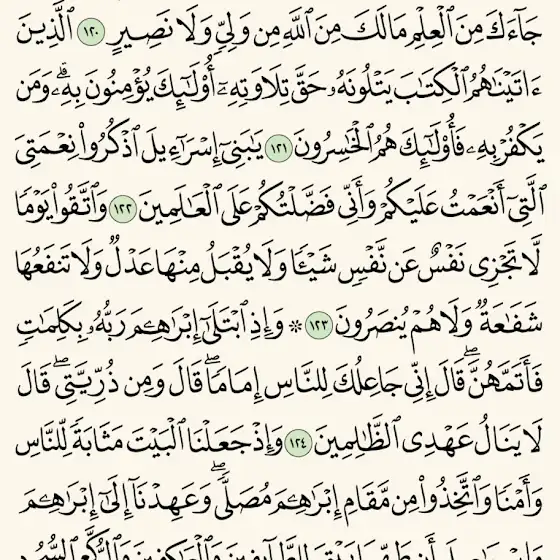 جَآءَكَ مِنَ ٱلْعِلْمِ مَا لَكَ مِنَ ٱللَّهِ مِن وَلِىٍّ وَلَا نَصِيرٍ ١٢٠ ٱلَّذِينَ
ءَاتَيْنَـٰهُمُ ٱلْكِتَـٰبَ يَتْلُونَهُۥ حَقَّ تِلَاوَتِهِۦٓ أُو۟لَـٰٓئِكَ يُؤْمِنُونَ بِهِۦۗ وَمَن
يَكْفُرْ بِهِۦ فَأُو۟لَـٰٓئِكَ هُمُ ٱلْخَـٰسِرُونَ ١٢١ يَـٰبَنِىٓ إِسْرَٰٓءِيلَ ٱذْكُرُوا۟ نِعْمَتِىَ
ٱلَّتِىٓ أَنْعَمْتُ عَلَيْكُمْ وَأَنِّى فَضَّلْتُكُمْ عَلَى ٱلْعَـٰلَمِينَ ١٢٢ وَٱتَّقُوا۟ يَوْمًا
لَّا تَجْزِى نَفْسٌ عَن نَّفْسٍ شَيْـًٔا وَلَا يُقْبَلُ مِنْهَا عَدْلٌ وَلَا تَنفَعُهَا
شَفَـٰعَةٌ وَلَا هُمْ يُنصَرُونَ ١٢٣ ۞ وَإِذِ ٱبْتَلَىٰٓ إِبْرَٰهِـۧمَ رَبُّهُۥ بِكَلِمَـٰتٍ
فَأَتَمَّهُنَّۖ قَالَ إِنِّى جَاعِلُكَ لِلنَّاسِ إِمَامًاۖ قَالَ وَمِن ذُرِّيَّتِىۖ قَالَ
لَا يَنَالُ عَهْدِى ٱلظَّـٰلِمِينَ ١٢٤ وَإِذْ جَعَلْنَا ٱلْبَيْتَ مَثَابَةً لِّلنَّاسِ
وَأَمْنًا وَٱتَّخِذُوا۟ مِن مَّقَامِ إِبْرَٰهِـۧمَ مُصَلًّىۖ وَعَهِدْنَآ إِلَىٰٓ إِبْرَٰهِـۧمَ